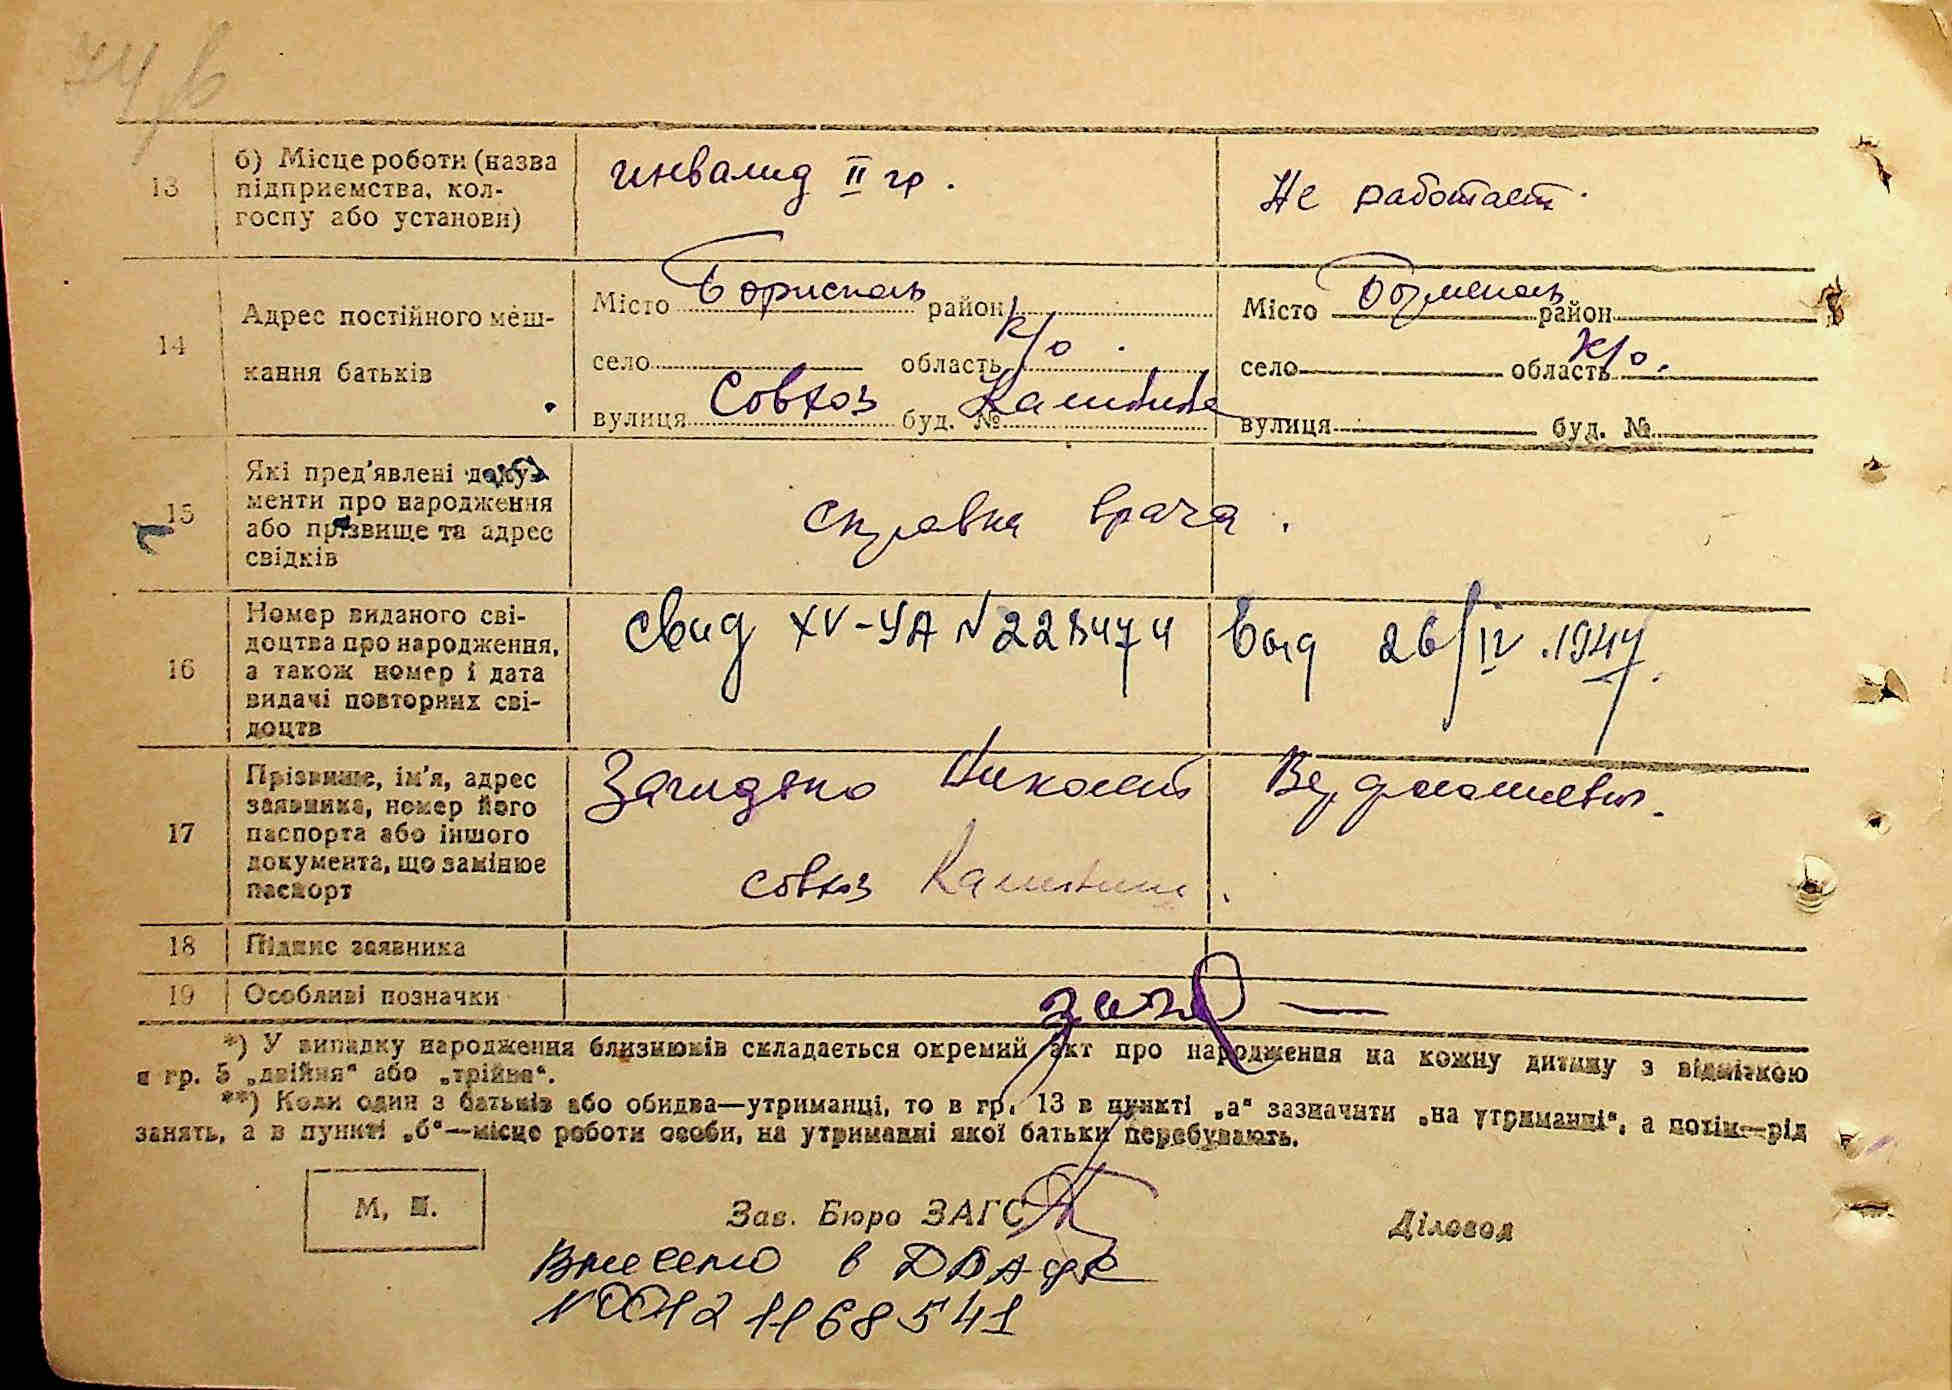 74 в
13 б) Місце роботи (назва підприємства, кол-госпу або установи) инвалид II гр. Не работает.
14 Адрес постійного меш-кання батьків
Місто Борисполь район Місто район
село область К/о. село область К/о.
вулиця Совхоз буд. № Калинина вулиця буд. №
15 Які пред'явлені доку-менти про народження або прізвище та адрес свідків справка врача.
16 Номер виданого сві-доцтва про народження, а також номер і дата видачі повторних сві-доцтв свид XV-УА № выд 26/IV.1947.
17 Прізвище, ім'я, адрес заявника, номер його паспорта або іншого документа, що замінює паспорт Николай
совхоз
18 Підпис заявника
19 Особливі позначки
*) У випадку народження близнюків складається окремий акт про народження на кожну дитину з відміткою
в гр. 5 „двійня“ або „трійня“.
**) Коли один з батьків або обидва—утриманці, то в гр. 13 в пункті „а“ зазначити „на утриманні“, а потім—рід
занять, а в пункті „б“—місце роботи особи, на утриманні якої батьки перебувають.
М. П. Зав. Бюро ЗАГС Діловод
Внесено в
№ 00121168541